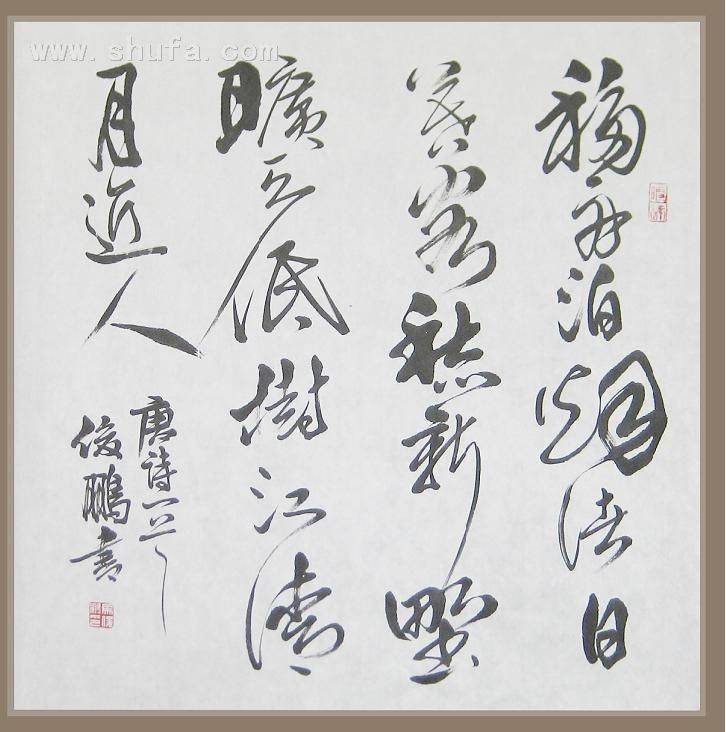 www.shufa.com
移舟泊烟渚日
暮客愁新野
曠天低樹江清
月近人
唐詩一首
俊鵬書